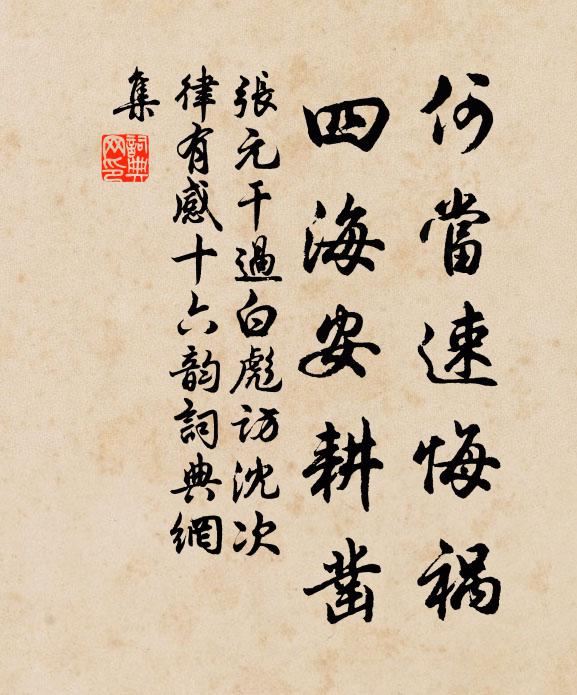 何當速悔禍
四海安耕凿
張元干過白彪访沈次
律有感十六韵詞典網
集
詞典
网印